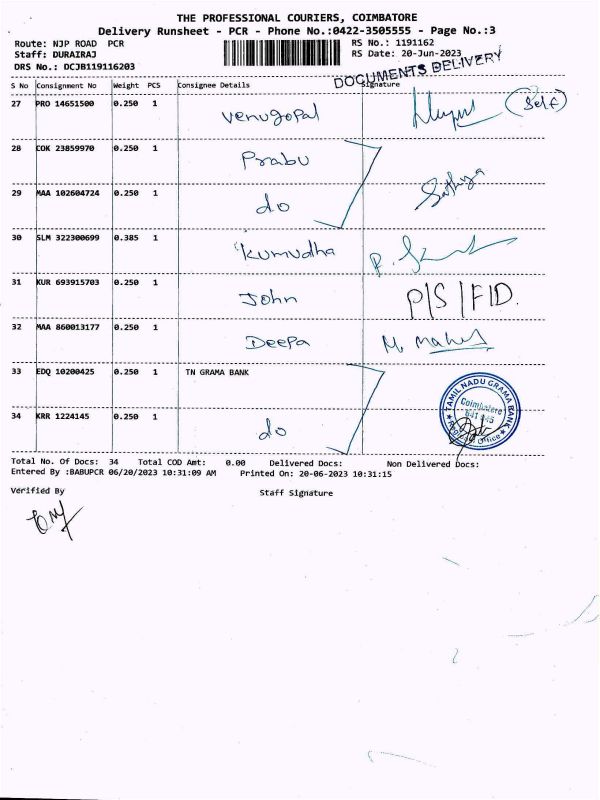 THE PROFESSIONAL COURIERS, COIMBATORE
Delivery Runsheet - PCR - Phone No.:0422-3505555 - Page No.:3
Route: NJP ROAD PCR RS No.: 1191162
Staff: DURAIRAJ RS Date: 20-Jun-2023
DRS No.: DCJB119116203
DOCUMENTS DELIVERY
S No Consignment No Weight PCS Consignee Details Signature
27 PRO 14651500 0.250 1 Venugopal (Self)
28 COK 23859970 0.250 1 Prabu
29 MAA 102604724 0.250 1 do Sathya
30 SLM 322300699 0.385 1 Kumudha
31 KUR 693915703 0.250 1 John P/S/FID.
32 MAA 860013177 0.250 1 Deepa
33 EDQ 10200425 0.250 1 TN GRAMA BANK
34 KRR 1224145 0.250 1 do
TAMIL NADU GRAMA BANK
Coimbatore
Office
Total No. Of Docs: 34 Total COD Amt: 0.00 Delivered Docs: Non Delivered Docs:
Entered By :BABUPCR 06/20/2023 10:31:09 AM Printed On: 20-06-2023 10:31:15
Verified By Staff Signature